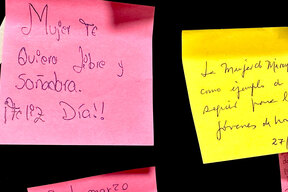 Mujer Te
Quiero libre y
Soñadora.
¡Feliz Día!!
La Mujer de
como ejemplo de
seguir para l
Jóvenes de h
27/
marzo